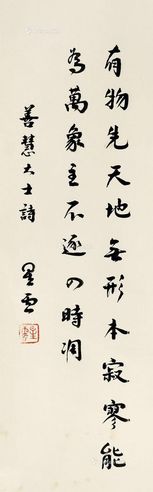 有物先天地無形本寂寥能
為萬象主不逐四時凋
善慧大士詩 星雲
星雲